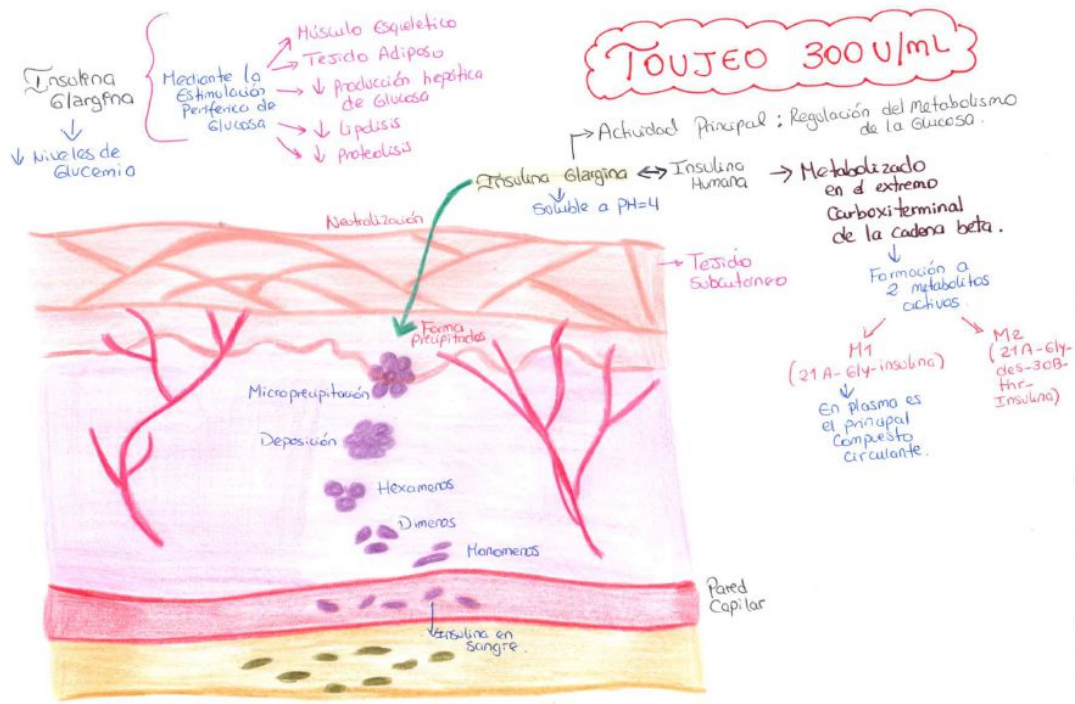 TOUJEO 300U/mL
Insulina
Glargina
↓ Niveles de
Glucemia
Mediante la
Estimulación
Periférica de
Glucosa
Músculo Esquelético
Tejido Adiposo
↓ Producción hepática
de Glucosa
↓ Lipólisis
↓ Proteólisis
Actividad Principal : Regulación del Metabolismo
de la Glucosa.
Insulina Glargina ↔ Insulina
Humana
Soluble a PH=4
Metabolizado
en el extremo
Carboxiterminal
de la cadena beta.
Formación a
2 metabolitos
activos.
M1
(21A-Gly-insulina)
En plasma es
el principal
compuesto
circulante.
M2
(21A-Gly-
des-30B-
thr-
Insulina)
Neutralización
Tejido
subcutáneo
Forma
Precipitados
Microprecipitación
Deposición
Hexameros
Dimeros
Monomeros
Pared
Capilar
Insulina en
sangre.